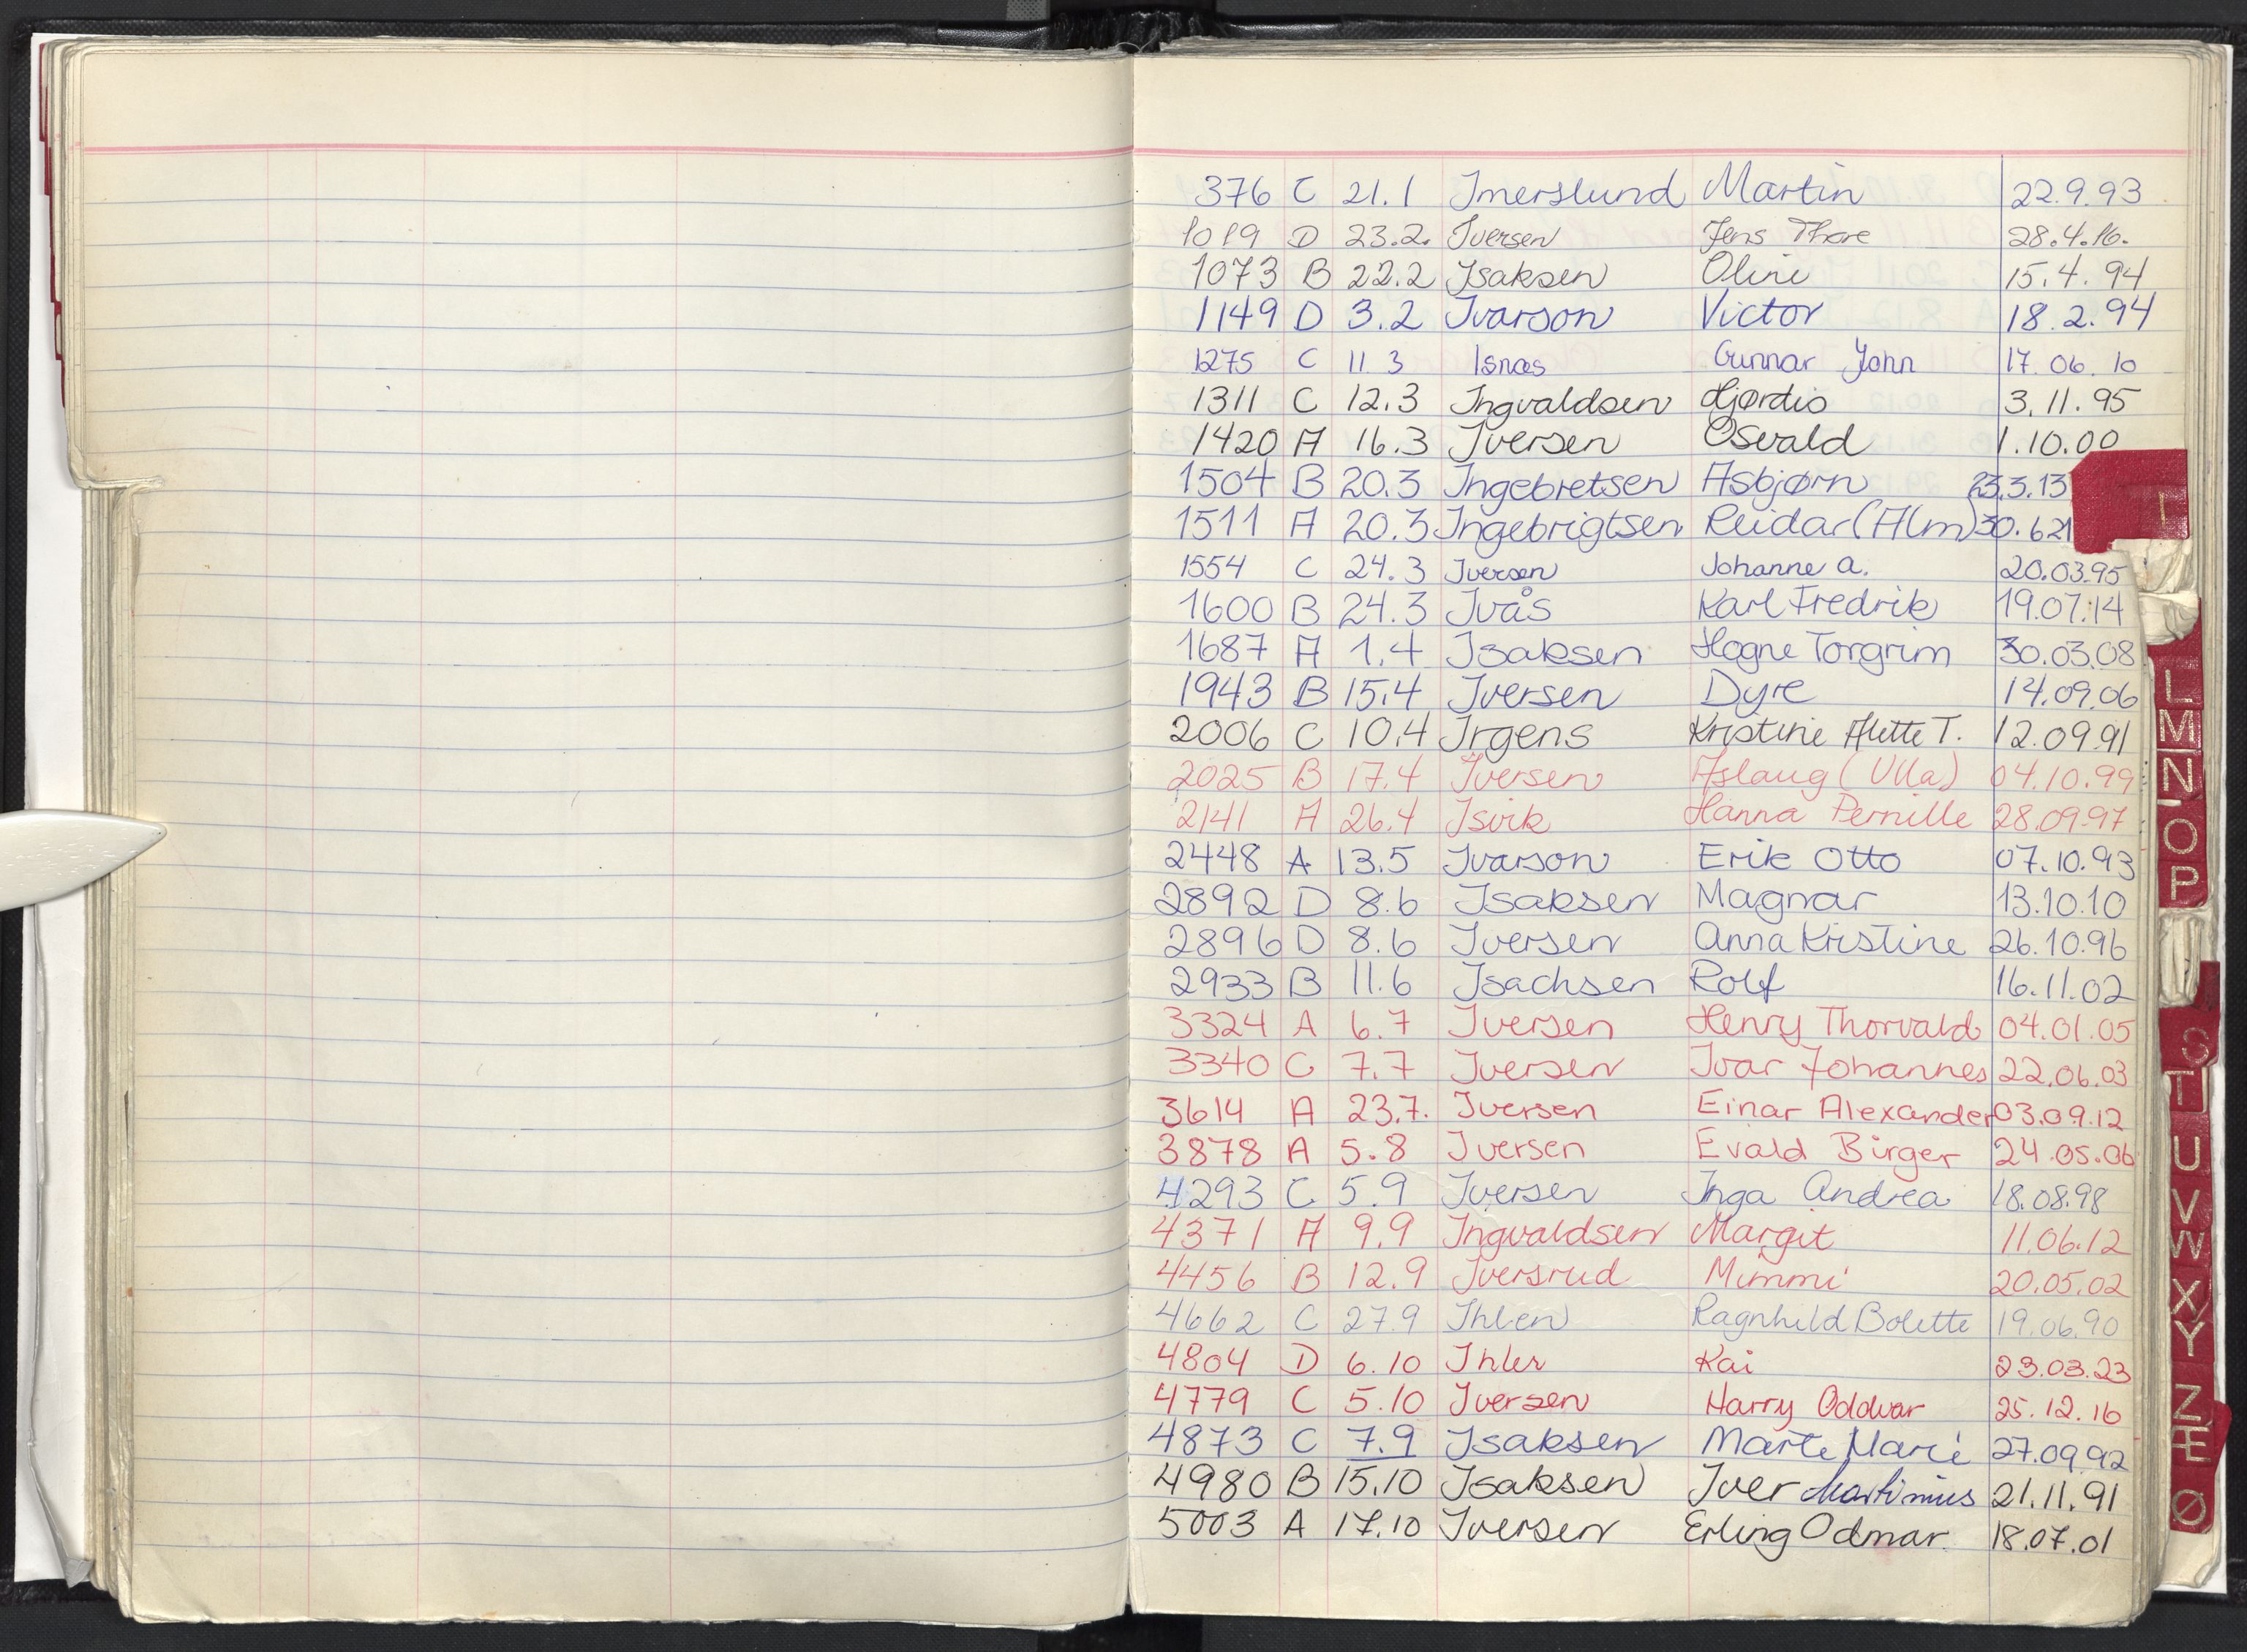 376 C 21.1 Imerslund Martin 22.9.93
1019 D 23.2. Iversen Jens Thore 28.4.16.
1073 B 22.2 Isaksen Oline 15.4.94
1149 D 3.2 Ivarson Victor 18.2.94
1275 C 11 3 Isnæs Gunnar John 17.06.10
1311 C 12.3 Ingvaldsen Hjørdis 3.11.95
1420 A 16.3 Iversen Osvald 1.10.00
1504 B 20.3 Ingebretsen Asbjørn 23.3.13
1511 A 20.3 Ingebrigtsen Reidar (Alm) 30.6 21
I
1554 C 24.3 Iversen Johanne A. 20.03.95
1600 B 24.3 Ivås Karl Fredrik 19.07.14
1687 A 1.4 Isaksen Hogne Torgrim 30.03.08
1943 B 15.4 Iversen Dyre 14.09.06
L
2006 C 10.4 Irgens Kristine Alette T. 12.09.91
M
2025 B 17.4 Iversen Aslaug (Ulla) 04.10.99
N
2141 A 26.4 Isvik Hanna Pernille 28.09.97
O
2448 A 13.5 Ivarson Erik Otto 07.10.93
P
2892 D 8.6 Isaksen Magnar 13.10.10
2896 D 8.6 Iversen Anna Kristine 26.10.96
2933 B 11.6 Isachsen Rolf 16.11.02
3324 A 6.7 Iversen Henry Thorvald 04.01.05
S
3340 C 7.7 Iversen Ivar Johannes 22.06.03
T
3614 A 23.7. Iversen Einar Alexander 03.09.12
3878 A 5.8 Iversen Evald Birger 24.05.06
U
4293 C 5.9 Iversen Inga Andrea 18.08.98
V
4371 A 9.9 Ingvaldsen Margit 11.06.12
W
4456 B 12.9 Iversrud Mimmi 20.05.02
X
4662 C 27.9 Ihlen Ragnhild Bolette 19.06.90
Y
4804 D 6.10 Ihler Kai 23.03.23
4779 C 5.10 Iversen Harry Oddvar 25.12.16
Z
4873 C 7.9 Isaksen Marte Marie 27.09.92
Æ
4980 B 15.10 Isaksen Iver Martinius 21.11.91
Ø
5003 A 17.10 Iversen Erling Odmar 18.07.01